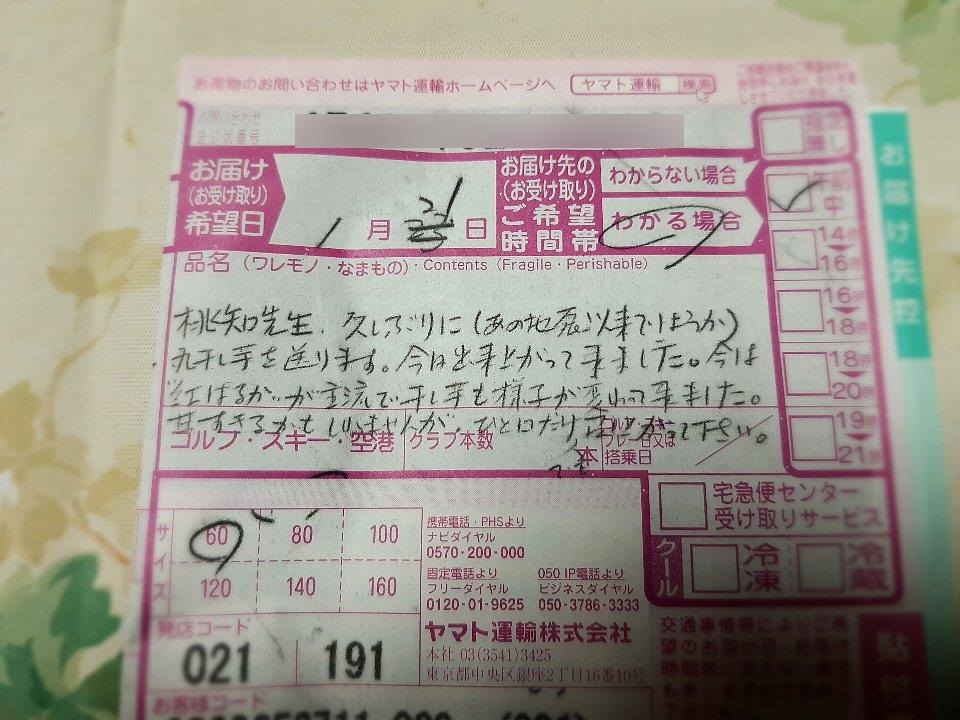 お荷物のお問い合わせはヤマト運輸ホームページへ ヤマト運輸 検索
お問い合わせ
送り状番号
お届け
(お受け取り)
希望日
1月 21日
お届け先の
(お受け取り)
ご希望
時間帯
わからない場合
わかる場合
指定無し
午前中
14時 16時
16時 18時
18時 20時
19時 21時
お届け先控
品名(ワレモノ・なまもの)・Contents (Fragile・Perishable)
桃知先生、久しぶりに(あの地震以来でしょうか)
丸干し芋を送ります。今日出来上がって来ました。今は
紅はるかが主流で干し芋も様子が変わって来ました。
甘すぎるかもしれませんが、ひと口だけでも下さい。
ゴルフ・スキー・空港
クラブ本数
本
ゴルフ・スキー
プレー日又は
搭乗日
宅急便センター
受け取りサービス
サイズ
60 80 100
120 140 160
クール
冷凍
冷蔵
携帯電話・PHSより
ナビダイヤル
0570-200-000
固定電話より
フリーダイヤル
0120-01-9625
050 IP電話より
ビジネスダイヤル
050-3786-3333
発店コード
021 191
ヤマト運輸株式会社
本社 03(3541)3425
東京都中央区銀座2丁目16番10号
交通事情等によりご希
望のお届け
時間帯
貼付
お客様コード